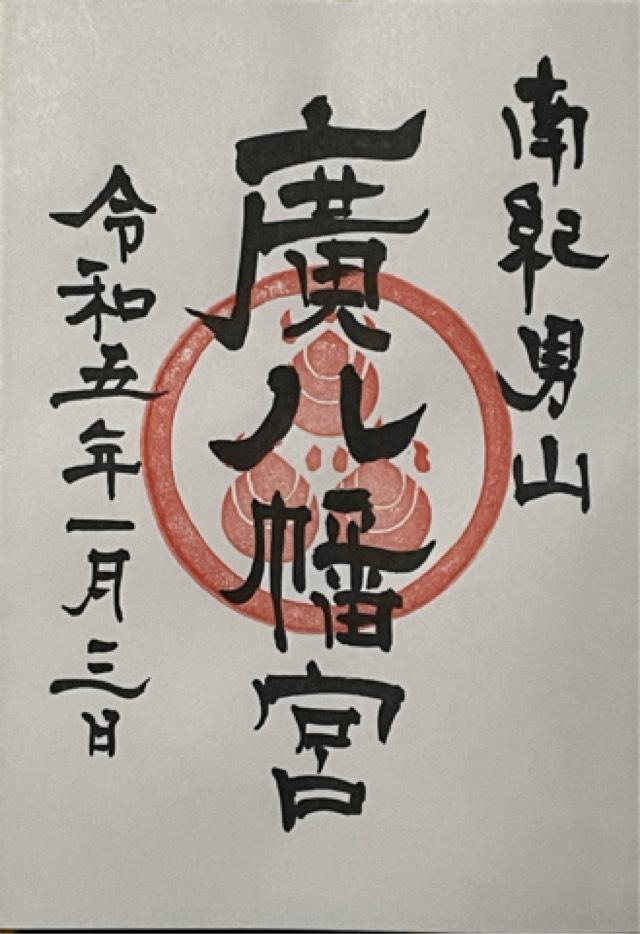 南紀男山
廣八幡宮
令和五年一月三日